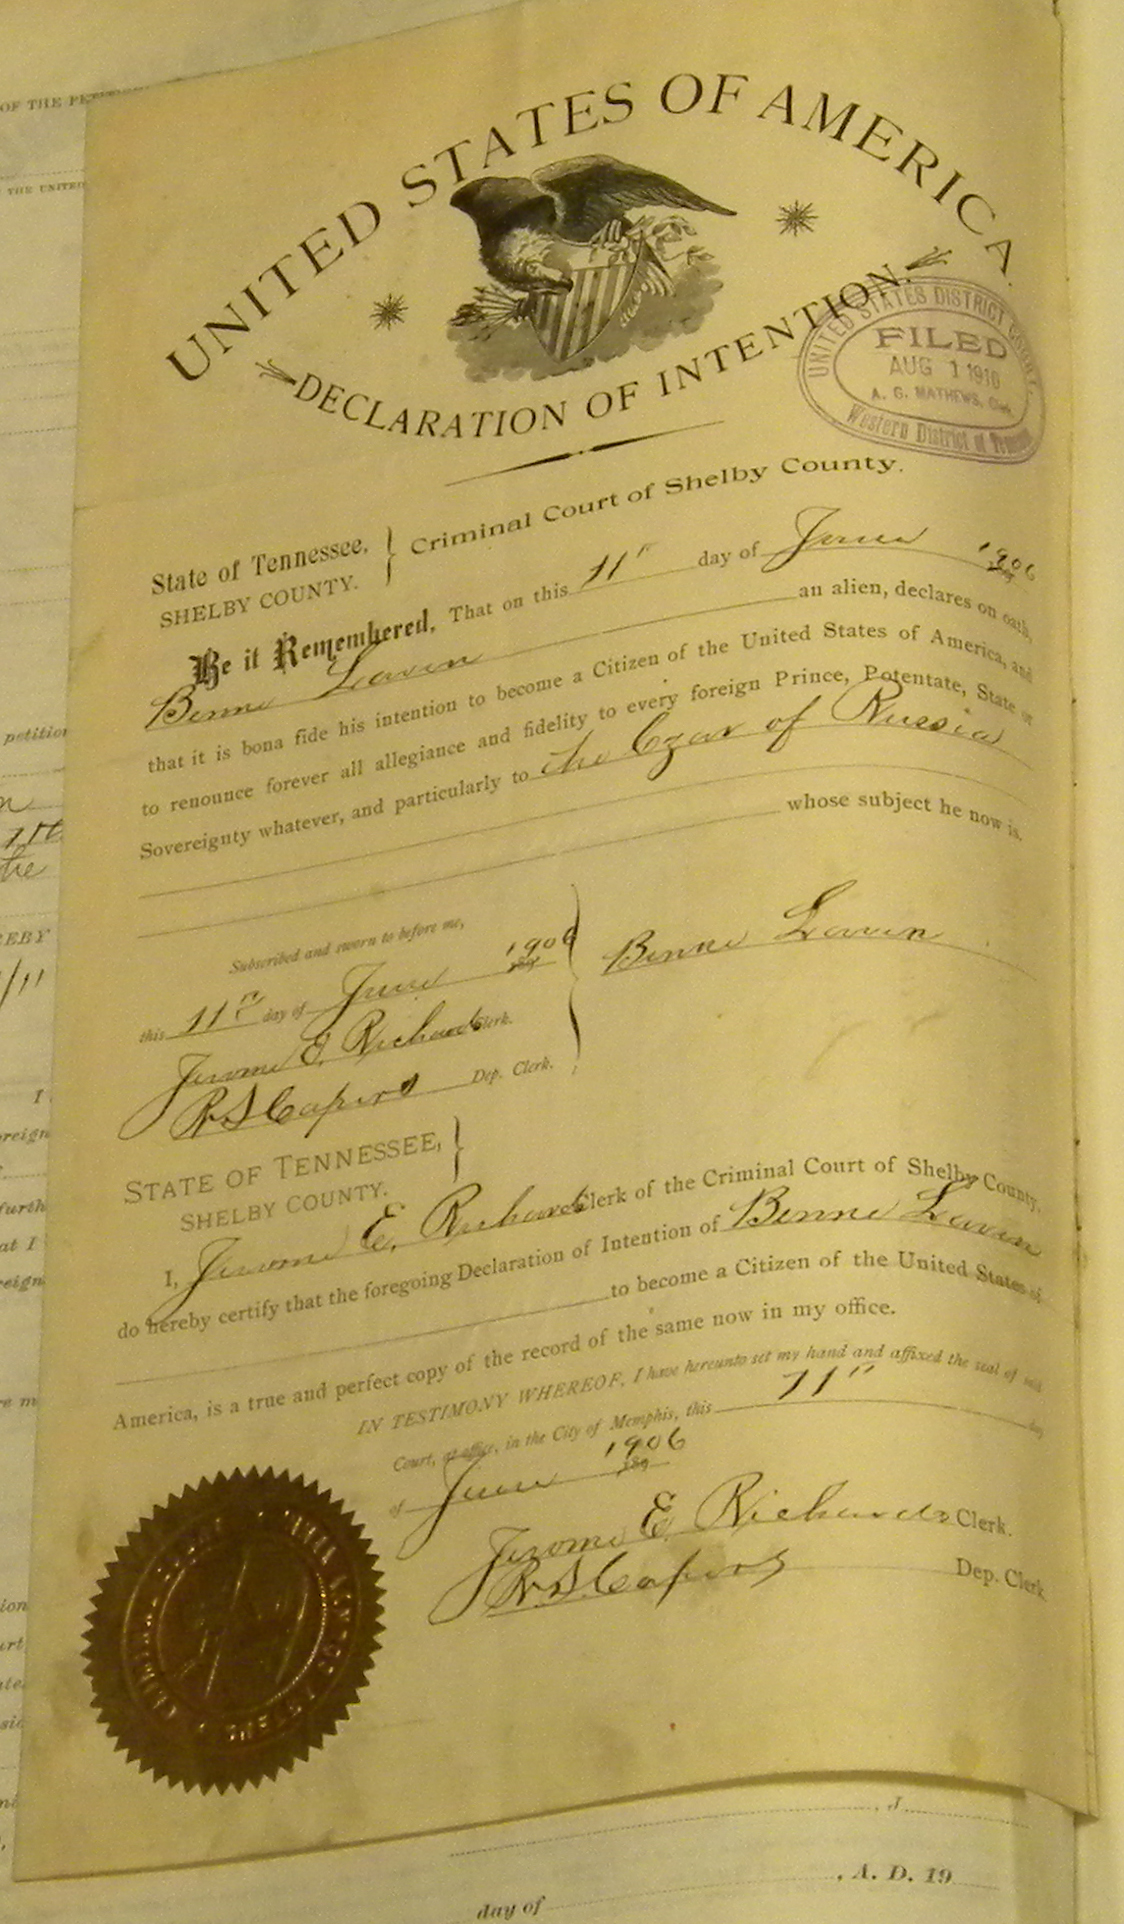 OF THE
THE UNITED
UNITED STATES OF AMERICA.
DECLARATION OF INTENTION.
UNITED STATES DISTRICT COURT,
FILED
AUG 1 1910
A. G. MATHEWS, Clerk
Western District of
State of Tennessee,
SHELBY COUNTY.
Criminal Court of Shelby County.
Be it Remembered, That on this 11" day of June 1906
Benne Lavin an alien, declares on oath,
that it is bona fide his intention to become a Citizen of the United States of America, and
to renounce forever all allegiance and fidelity to every foreign Prince, Potentate, State or
Sovereignty whatever, and particularly to the Czar of Russia
whose subject he now is.
Subscribed and sworn to before me,
this 11" day of June 1906
Benne Lavin
Jerome E. Richards Clerk.
R S Capers Dep. Clerk.
STATE OF TENNESSEE,
SHELBY COUNTY.
I, Jerome E. Richards Clerk of the Criminal Court of Shelby County,
do hereby certify that the foregoing Declaration of Intention of Benne Lavin
to become a Citizen of the United States of
America, is a true and perfect copy of the record of the same now in my office.
IN TESTIMONY WHEREOF, I have hereunto set my hand and affixed the seal of said
Court, at office, in the City of Memphis, this 11" day
of June 1906
Jerome E. Richards Clerk.
R. S. Capers Dep. Clerk
, A. D. 19
day of